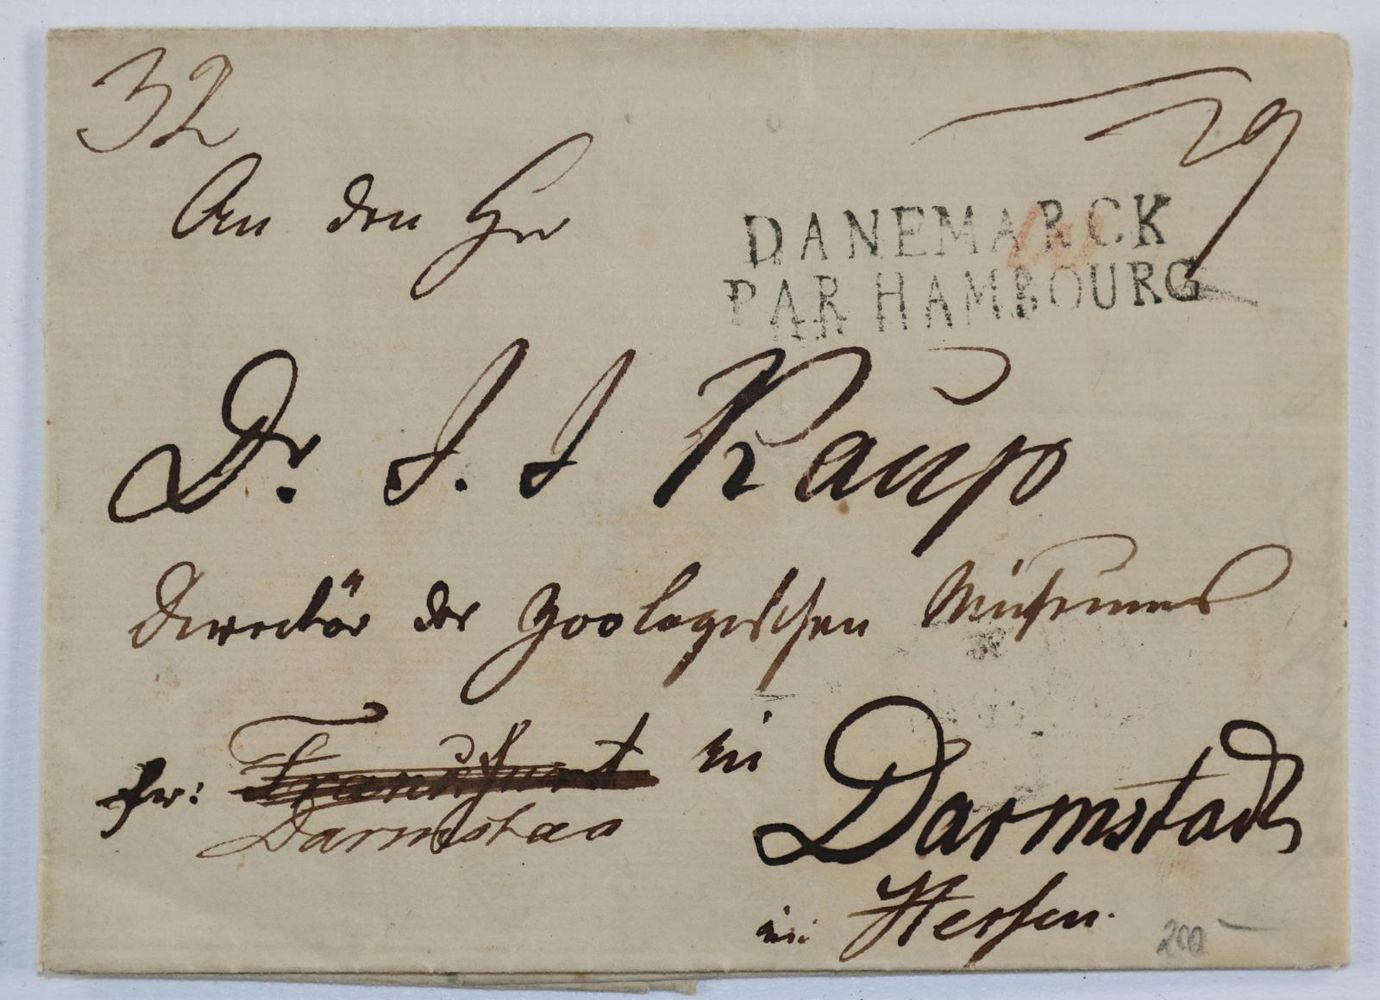 32
An den Hr
DANEMARCK
PAR HAMBOURG
Dr. J. J Kaup
Director des zoologischen Museums
fr: Frankfurt in Darmstadt
Darmstad
in Hessen.
200